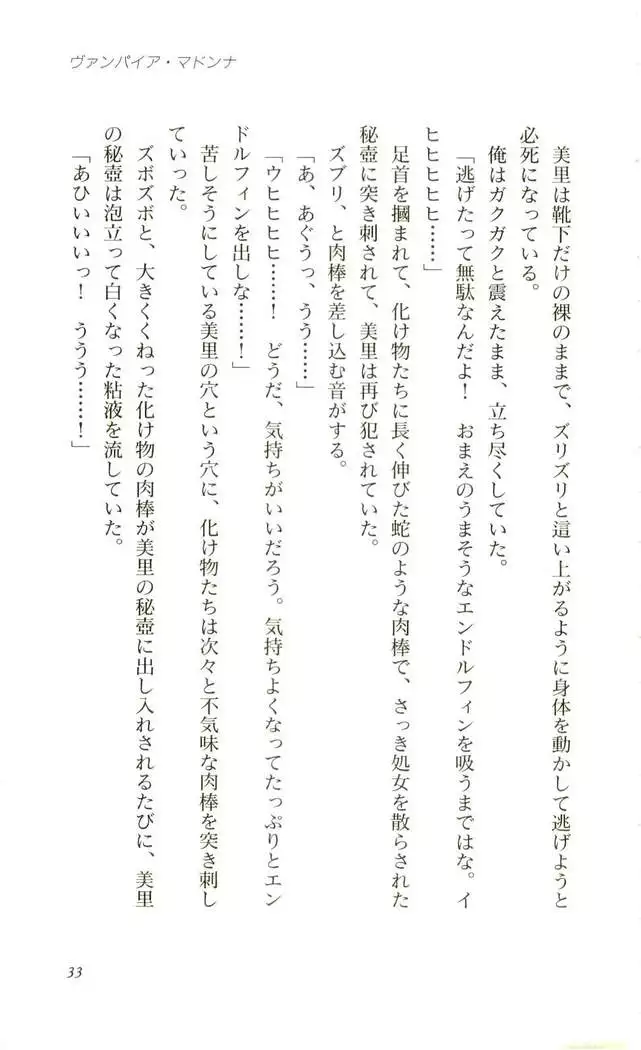 ヴァンパイア・マドンナ
　美里は靴下だけの裸のままで、ズリズリと這い上がるように身体を動かして逃げようと
必死になっている。
　俺はガクガクと震えたまま、立ち尽くしていた。
「逃げたって無駄なんだよ！　おまえのうまそうなエンドルフィンを吸うまではな。イ
ヒヒヒヒヒ……」
　足首を摑まれて、化け物たちに長く伸びた蛇のような肉棒で、さっき処女を散らされた
秘壺に突き刺されて、美里は再び犯されていた。
　ズブリ、と肉棒を差し込む音がする。
「あ、あぐうっ、うう……」
「ウヒヒヒヒ……！　どうだ、気持ちがいいだろう。気持ちよくなってたっぷりとエン
ドルフィンを出しな……！」
　苦しそうにしている美里の穴という穴に、化け物たちは次々と不気味な肉棒を突き刺し
ていった。
　ズボズボと、大きくくねった化け物の肉棒が美里の秘壺に出し入れされるたびに、美里
の秘壺は泡立って白くなった粘液を流していた。
「あひいいいっ！　ううう……！」
33